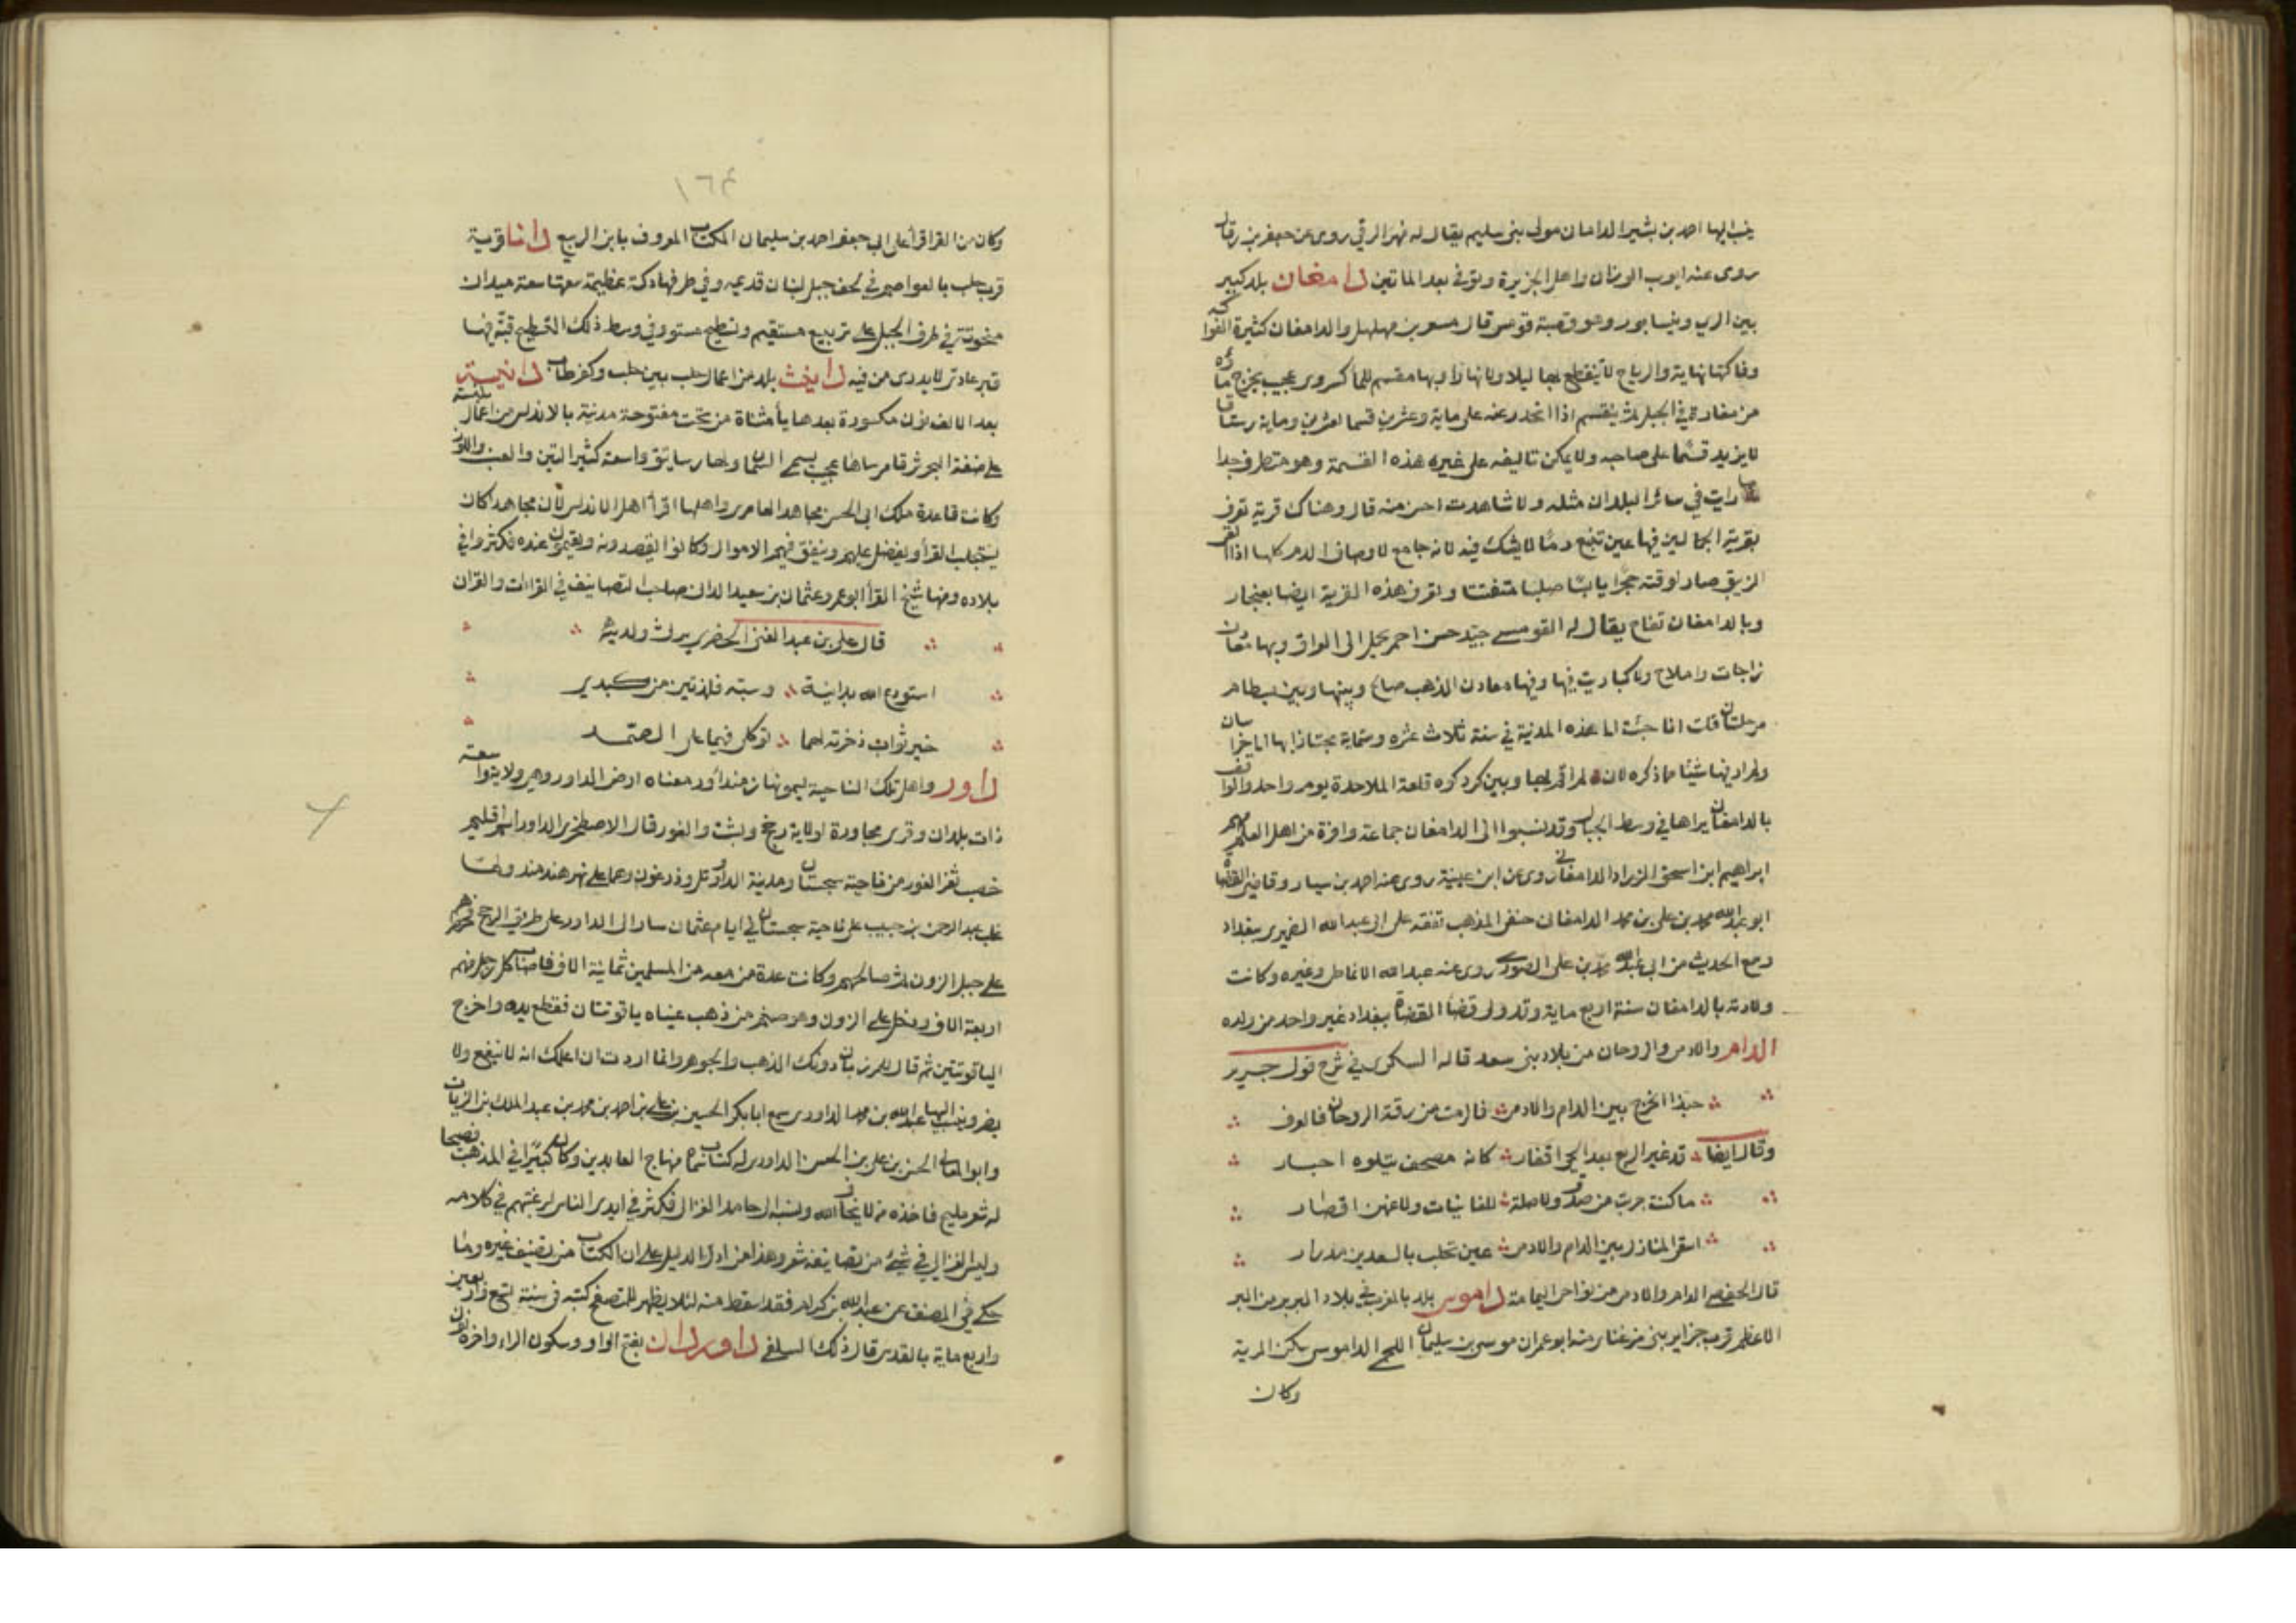 ينسب اليها احمد بن بشير الدامان مولى بنى سليم يقال له نهر الرقي روى عن جعفر بن رقان
روى عنه ايوب الوزان واهل الجزيرة وتوفى بعد الماتين دامغان بلد كبير
بين الري ونيسابور وهو قصبة قومس قال مسعر بن مهلهل والدامغان كثيرة الفواكه
وفاكهتها نهاية والرياح لا تنقطع بها ليلا ولا نهارا وبها مقسم للمأ كسروى عجيب يخرج ماؤه
من مغارة في الجبل ثم ينقسم اذا انحدر عنه على ماية وعشرين قسما لعشرين وماية رستاقا
لا يزيد قسما على صاحبه ولا يمكن تاليفه على غير هذه القسمة وهو مستطرف جدا
ما رايت في سائر البلدان مثله ولا شاهدت احسن منه قال وهناك قرية تعرف
بقرية الجمالين فيها عين تنبع دما لا يشك فيه لانه جامع لاوصاف الدم كلها اذا القي
الزيبق صار لوقته حجرا يابسا صلبا متفتتا وتعرف هذه القرية ايضا بغنجار
وبالدامغان تفاح يقال له القومسي جيد حسن احمر يحمل الى العراق وبها معادن
زاجات واملاح ولا كباريت فيها وفيها معادن الذهب صالح وبينها وبين بسطام
مرحلتان قلت انا جئت الى هذه المدينة في سنة ثلاث عشره وستماية مجتازا بها الى خراسان
ولم ار فيها شيئا مما ذكره لان لم اقم بها وبين كردكوه قلعة الملاحدة يوم واحد والواقف
بالدامغان يراها في وسط الجبال وقد نسبوا الى الدامغان جماعة وافرة من اهل العلم منهم
ابراهيم ابن اسحق الزراد الدامغاني روى عن ابن عيينة روى عنه احمد بن سيار وقاضي القضاة
ابو عبد الله محمد بن على بن محمد الدامغان حنفي المذهب تفقه على ابى عبد الله الضيمرى ببغداد
وسمع الحديث من ابي عبد الله محمد بن على الصورى روى عنه عبد الله الانماطى وغيره وكانت
ولادته بالدامغان سنة اربع ماية وقد ولى قضا القضاة ببغداد غير واحد من ولده
الدام والادمى والروحان من بلاد بنى سعد قاله السكرى في شرح قول جرير
حبذا الخرج بين الدام والادمى فالرمث من رقة الروحان فالعرف
وقال ايضا قد غير الربع بعد الحى اقفار كانه مصحف يتلوه احبار
ما كنت جربت من صدق ولا صلة للغانيات ولا عنهن اقصار
اسقى المنازل بين الدام والادمى عين تحلب بالسعدين مدرار
قال الحفصى الدام والادمى من نواحى اليمامة داموس بلد بالمغرب في بلاد البربر من البر
الاعظم قرب جزاير بنى مزغناى منه ابو عمران موسى بن سليمان اللخمى الداموسى سكن المرية
وكان
١٦٤
وكان من القرا قرأ على ابى جعفر احمد بن سليمان الكاتب المعروف بابن الربيع دانا قرية
قرب حلب بالعواصم في لحف جبل لبنان قديمه وفي طرفها دكة عظيمة سعتها سعة ميدان
منحوتة في طرف الجبل على تربيع مستقيم وتسطيح مستو وفي وسط ذلك التسطيح قبة فيها
قبر عادى لا يدرى من فيه دانيث بلد من اعمال حلب بين حلب وكفرطاب دانية
بعد الالف نون مكسورة بعدها يأ مثناة من تحت مفتوحة مدينة بالاندلس من اعمال بلنسة
على ضفة البحر شرقا مرساها عجيب يسمى السمان ولها رساتيق واسعة كثير التين والعنب واللوز
وكانت قاعدة ملك ابى الحسن مجاهد العامرى واهلها اقرأ اهل الاندلس لان مجاهد كان
يستجلب القرأ ويفضل عليهم وينفق فيهم الاموال وكانوا يقصدونه ويقيمون عنده فكثروا في
بلاده ومنها شيخ القرأ ابو عمرو عثمان بن سعيد الدان صاحب التصانيف في القراات والقران
قال على بن عبد الغنى الحضرى يرث ولديه
استودع الله بدانية وسبته فلذتين من كبدى
خير ثواب ذخرته لهما توكلى فيهما على الصمد
داور واهل تلك الناحية يسمونها زمنداور ومعناه ارض الداور وهى ولاية واسعة
ذات بلدان وقرى مجاورة لولاية رخج وبست والغور قال الاصطخرى الداور اسم اقليم
خصب ثغر الغور من ناحية سجستان ومدينة الداور تل ودرغور وهما على نهر هندمند ولما
غلب عبد الرحمن بن حبيب على ناحية سجستان في ايام عثمان سار الى الداور على طريق الرخج فحصرهم
على جبل الزون ثم صالحهم وكانت عدة من معه من المسلمين ثمانية الاف فاصاب كل رجل منهم
اربعة الاف ودخل على الزون وهو صنم من ذهب عيناه ياقوتتان فقطع يده واخرج
الياقوتتين ثم قال للمرزبان دونك الذهب والجوهر وانما اردت ان اعلمك انه لا ينفع ولا
يضر وينسب اليها عبد الله بن محمد الداورى سمع ابا بكر الحسين بن على بن احمد بن محمد بن عبد الملك بن الزيات
وابو المعالى الحسن بن على بن الحسن الداورى له كتاب سماه منهاج العابدين وكان كبيرا في المذهب فصيحا
له شعر مليح فاخذه من لا يخاف الله ونسبه الى ابى حامد الغزالى فكثر في ايدى الناس لرغبتهم في كلامه
وليس للغزالي في شيء من تصانيفه شعر وهذا من ادل الدليل على ان الكتاب من تصنيف غيره وما
حكى في المصنف عن عبد الله بن كرام فقد اسقط منه لئلا يظهر للمتصفح كتبه فى سنة تسع واربعين
واربع ماية بالقدس قال ذلك السلفى داوردان بفتح الواو وسكون الراء واخره نون